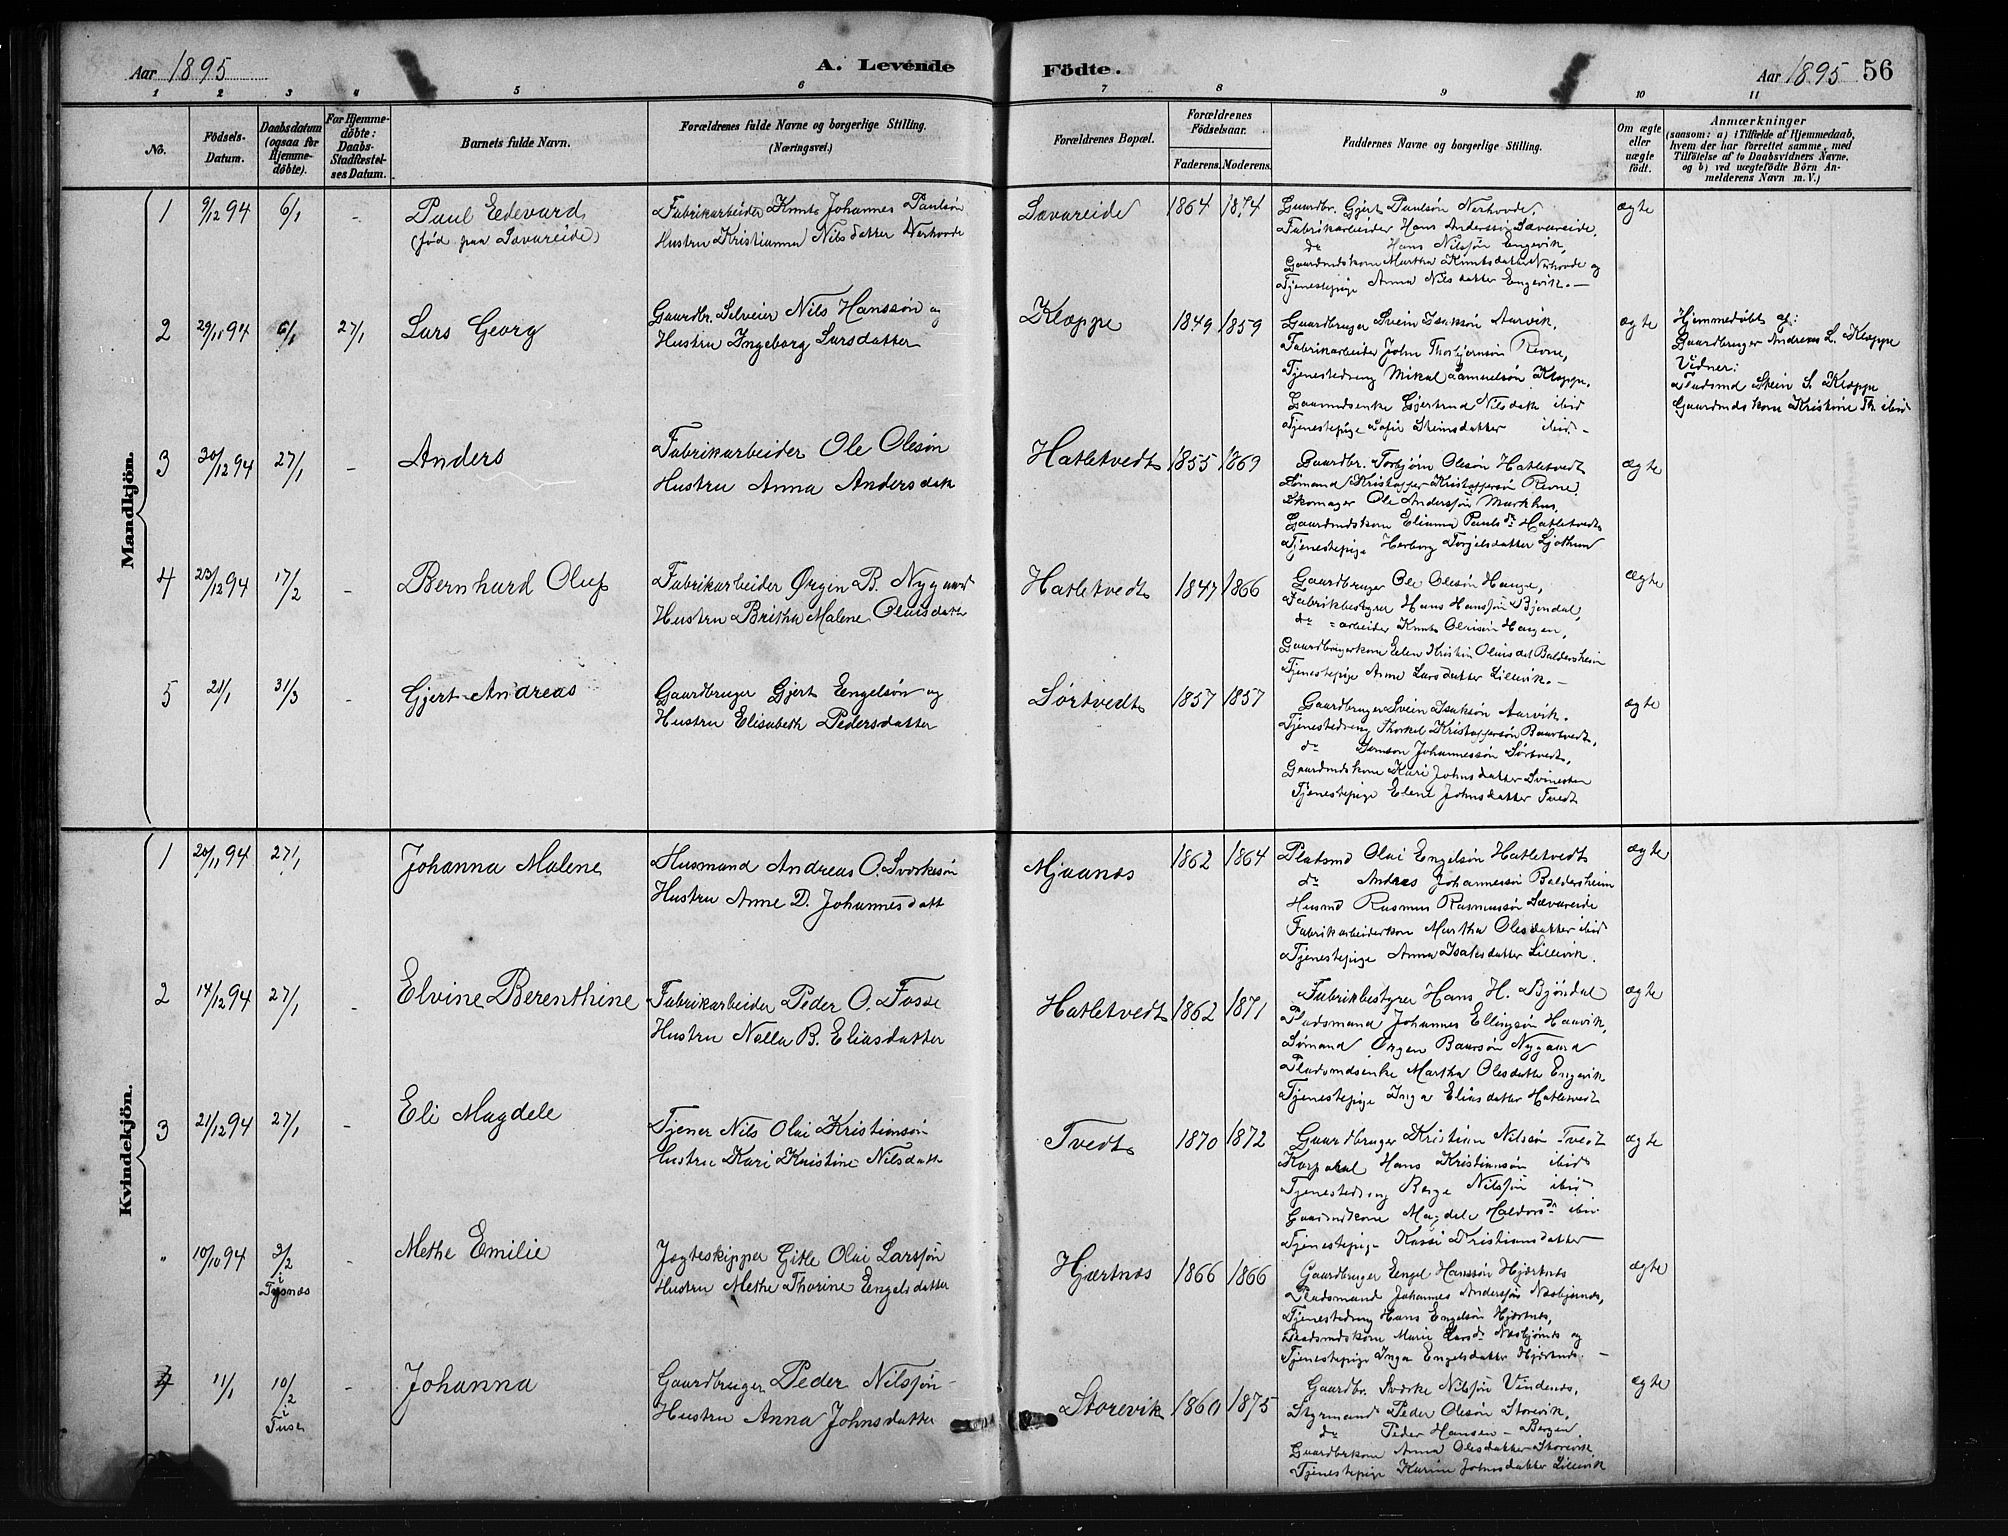 Aar 1895
A. Levende
Födte.
Aar 1895 56
1 2 3 4 5 6 7 8 9 10 11
No.
Födsels-
Datum.
Daabsdatum
(ogsaa for
Hjemme-
döbte).
For Hjemme-
döbte:
Daabs-
Stadfæstel-
ses Datum.
Barnets fulde Navn.
Forældrenes fulde Navne og borgerlige Stilling.
(Næringsvei.)
Forældrenes Bopæl.
Forældrenes
Födselsaar.
Faderens. Moderens.
Faddernes Navne og borgerlige Stilling.
Om ægte
eller
uægte
født.
Anmærkninger
(saasom: a) i Tilfælde af Hjemmedaab,
hvem der har forrettet samme, med
Tilföielse af to Daabsvidners Navne,
og b) ved uægtefödte Börn An-
melderens Navn m. V.)
Mandkjön.
1 9/12 94 6/1 - Paul Edevard
(fød paa Sævareide)
Fabrikarbeider Knut Johannes Paulsøn
Hustru Kristianna Nilsdatter Nerhovde
Sævareide 1864 1874
Gaardbr. Gjert Paulsøn Nerhovde,
Fabrikarbeider Hans Anderssøn Sævareide,
do Hans Nilssøn Engevik,
Gaardmdskone Martha Knutsdatter Nerhovde og
Tjenestepige Anna Nilsdatter Engevik. —
ægte
2 29/11 94 6/1 27/1 Lars Georg
Gaardbr. Selveier Nils Hanssøn og
Hustru Ingeborg Larsdatter
Kloppe 1849 1859
Gaardbruger Svein Isaksøn Aarvik,
Fabrikarbeider John Thorbjørnsøn Revne,
Tjenestedreng Mikal Samuelsøn Kloppe,
Gaardmdsenke Gjertrud Nilsdatt ibid
Tjenestepige Sofie Steinsdatter ibid. -
ægte
Hjemmedøbt af:
Gaardbruger Andreas L. Kloppe
Vidner:
Pladsmd Stein S. Kloppe
Gaardmdskone Kristine Th. ibid
3 30/12 94 27/1 - Anders
Fabrikarbeider Ole Olesøn
Hustru Anna Andersdatt
Hatletvedt 1855 1869
Gaardbr. Torbjørn Olesøn Hatletvedt
Sømand Kristoffer Kristoffersøn Revne,
Skomager Ole Anderssøn Markhus,
Gaardmdskone Elianna Paulsdr Hatletvedt
Tjenestepige Herborg Torjelsdatter Ljothun
ægte
4 23/12 94 17/2 - Bernhard Oluf
Fabrikarbeider Ørgin B. Nygaard
Hustru Britha Malene Olausdatt
Hatletvedt 1847 1866
Gaardbruger Ole Olesøn Hauge,
Fabrikbestyrer Hans Hanssøn Bjøndal,
do = arbeider Knut Olaisøn Haugen,
Gaardbrugerkone Elen Kristin Olaisdat Baldersheim
Tjenestepige Anne Larsdatter Lillevik. -
ægte
5 21/1 31/3 - Gjert Andreas
Gaardbruger Gjert Engelsøn og
Hustru Elisabeth Pedersdatter
Sørtvedt 1857 1857
Gaardbruger Svein Isaksøn Aarvik.
Tjenestedreng Thorkel Kristoffersøn Baartvedt,
do Samson Johannessøn Sørtvedt,
Gaardmdskone Kari Johnsdatter Svinesten
Tjenestepige Elene Johnsdatter Tvedt
ægte
Kvindekjön.
1 20/11 94 27/1 Johanna Malene
Husmand Andreas O. Sværkesøn
Hustru Anne D. Johannesdatt
Mjaanæs 1862 1864
Pladsmd Olai Engelsøn Hatletvedt
do Andres Johannessøn Baldersheim
Husmd Rasmus Rasmussøn Sævareide
Fabrikarbeiderkone Martha Olesdatter ibid
Tjenestepige Anna Isaksdatter Lillevik.
ægte
2 14/12 94 27/1 - Elvine Berenthine
Fabrikarbeider Peder O. Fosse
Hustru Nella B. Eliasdatter
Hatletvedt 1862 1871
Fabrikbestyrer Hans H. Bjøndal
Pladsmand Johannes Ellingsøn Haavik,
Sømand Ørgen Baarsøn Nygaard
Pladsmdsenke Martha Olesdatter Engevik
Tjenestepige Inga Eliasdatter Hatletvedt
ægte
3 21/12 94 27/1 - Eli Magdele
Tjener Nils Olai Kristiansøn
Hustru Kari Kristine Nilsdatt
Tvedt 1870 1872
Gaardbruger Kristian Nilssøn Tvedt
Korporal Hans Kristiansøn ibid
Tjenestedreng Børge Nilssøn ibid
Gaardmdskone Magdele Haldorsdr ibid
Tjenestepige Kassi Kristiansdatter
ægte
" 10/10 94 3/2 i Tysnæs - Methe Emilie
Jægteskipper Gitle Olai Larssøn
Hustru Methe Thorine Engelsdatter
Hjærtnæs 1866 1866
Gaardbruger Engel Hanssøn Hjærtnæs
Pladsmand Johannes Anderssøn Næsbjørnæs,
Tjenestedreng Hans Engelsøn Hjærtnæs,
Pladsmdskone Marie Larsdr Næsbjørnæs og
Tjenestepige Inga Engelsdatter Hjærtnæs. —
ægte
4 11/1 10/2 i Fuse - Johanna
Gaardbruger Peder Nilssøn -
Hustru Anna Johnsdatter
Storevik 1860 1875
Gaardbr. Sværke Nilssøn Vindenæs,
Styrmand Peder Olesøn Storevik,
do Peder Hansen - Bergen,
Gaardbrkone Anna Olesdatter Storevik
Tjenestepige Karine Johnsdatter Lillevik
ægte